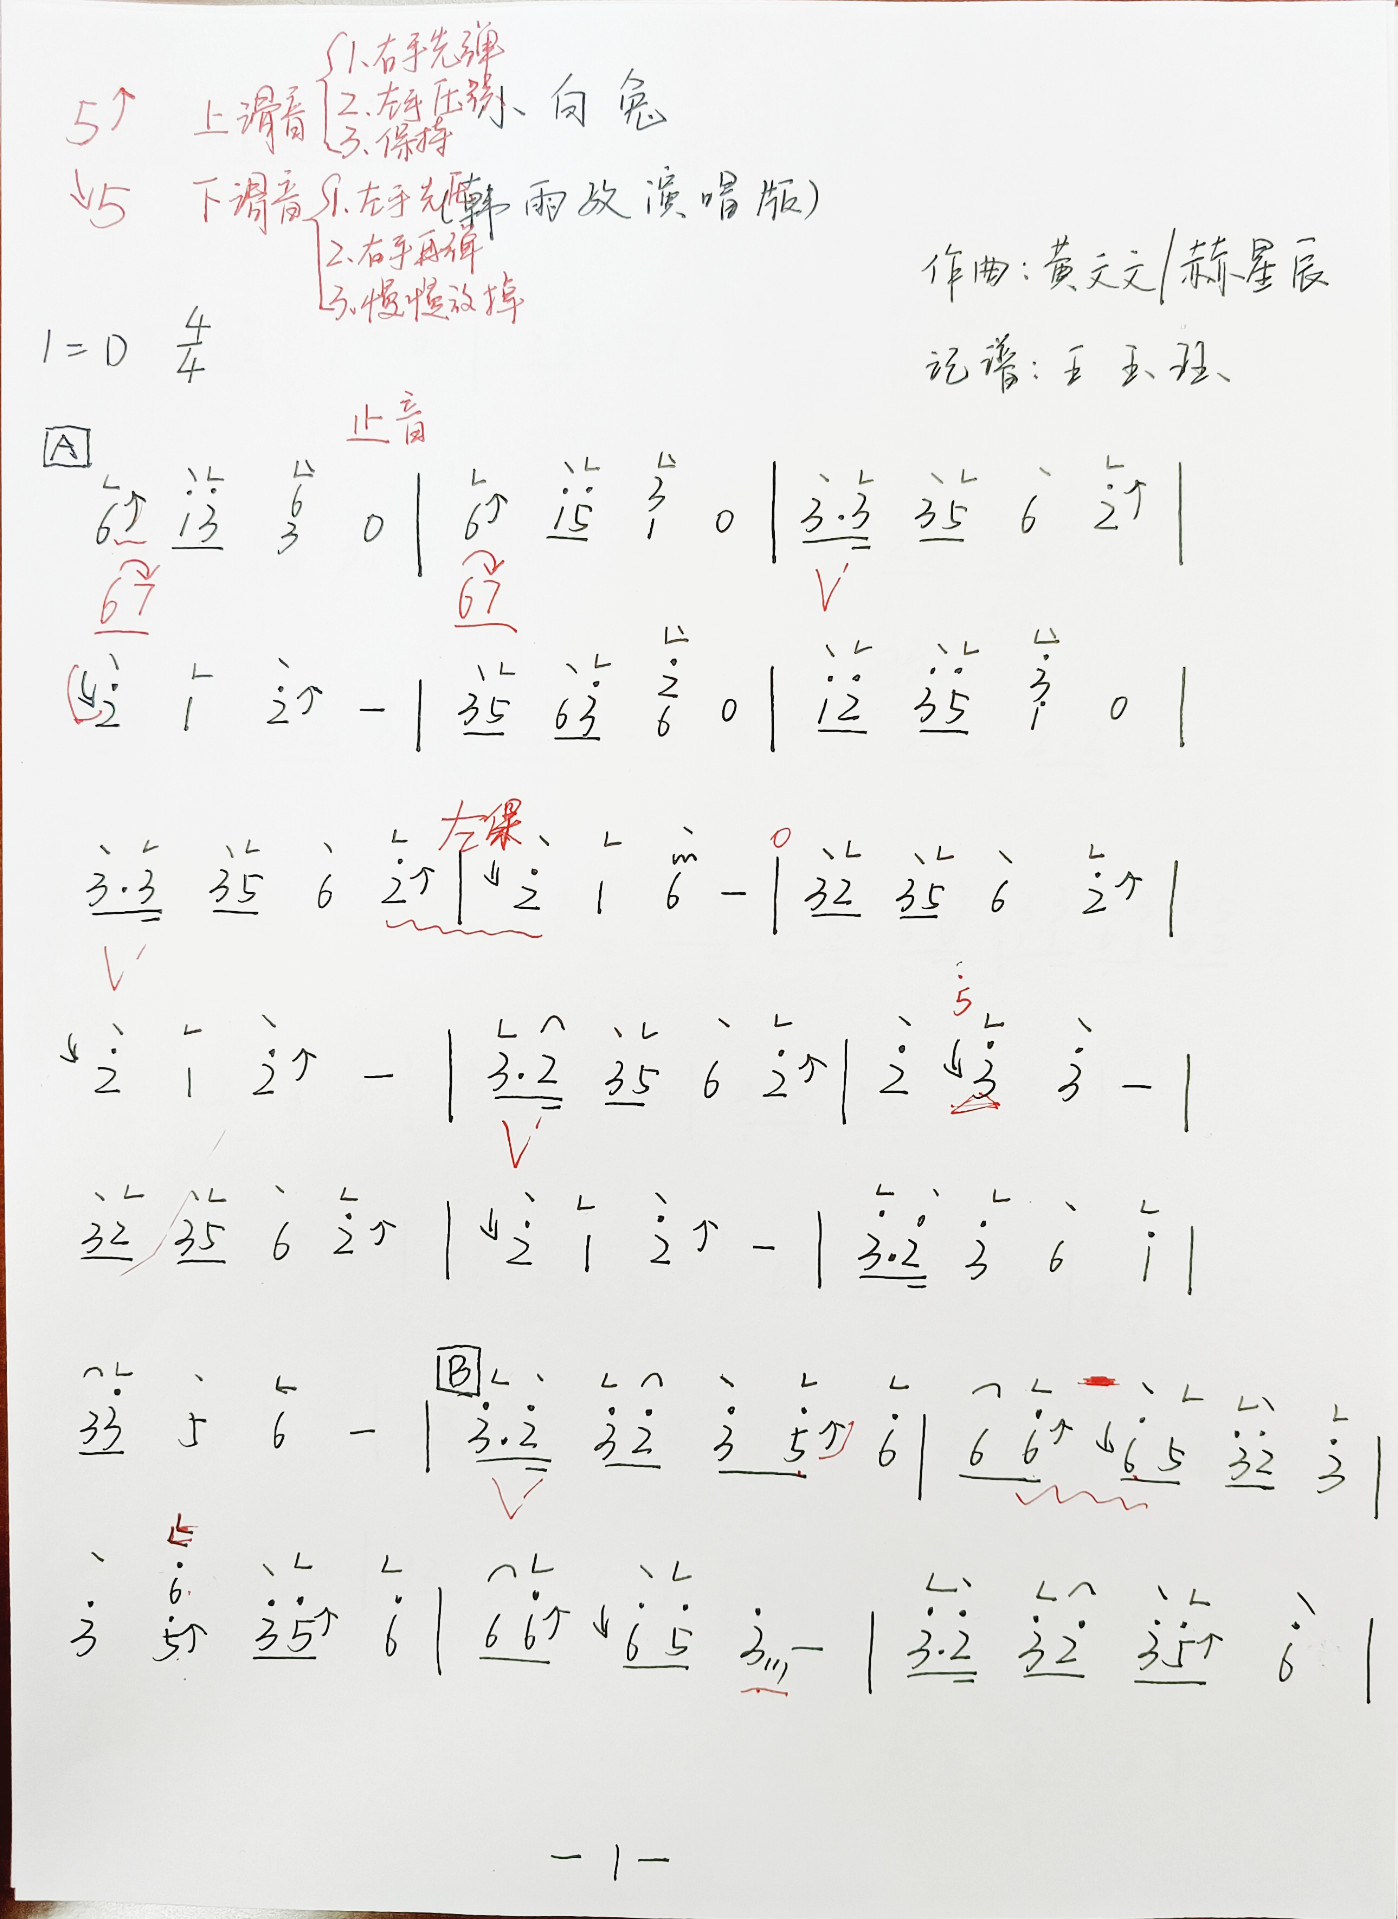 5↑ 上滑音 1.右手先弹
2.左手压弦
3.保持
小白兔
↓5 下滑音 1.左手先压
2.右手再弹
3.慢慢放掉
(韩雨玫演唱版)
作曲:黄文文/赫星辰
记谱:王玉珏
1=D 4/4
止音
A
6↑ i̇3̇ 6/3 0 | 6↑ i̇5̇ 3/1 0 | 3.3 35 6 2̇↑ |
67 67 V
↓2̇ 1 2̇↑ - | 35 63̇ 2̇/6 0 | 1̇2̇ 3̇5̇ 3̇/1̇ 0 |
左保 0
3.3 35 6 2̇↑ | ↓2̇ 1 6 - | 32 35 6 2̇↑ |
V
5̇
↓2̇ 1 2̇↑ - | 3.2 35 6 2̇↑ | 2̇ ↓3̇ 3̇ - |
V
32 35 6 2̇↑ | ↓2̇ 1 2̇↑ - | 3̇.2̇ 3̇ 6 1̇ |
B
33̇ 5 6 - | 3̇.2̇ 3̇2̇ 3̇ 5̇↑ 6̇ | 6 6̇↑ ↓6̇5 3̇2̇ 3̇ |
V
6̇
3̇ 5̇↑ 3̇5̇↑ 6̇ | 66̇↑ ↓6̇5̇ 3̇ - | 3̇.2̇ 3̇2̇ 3̇5̇↑ 6̇ |
-1-